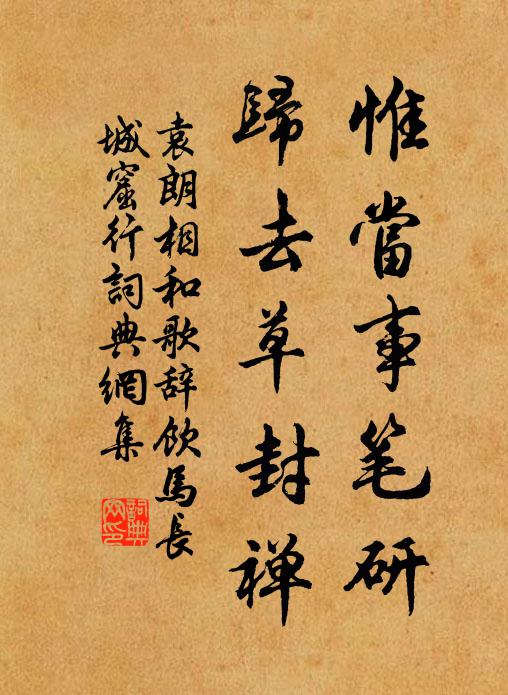 惟當事笔研
歸去草封禅
袁朗相和歌辞飲馬長
城窟行詞典網集
詞典